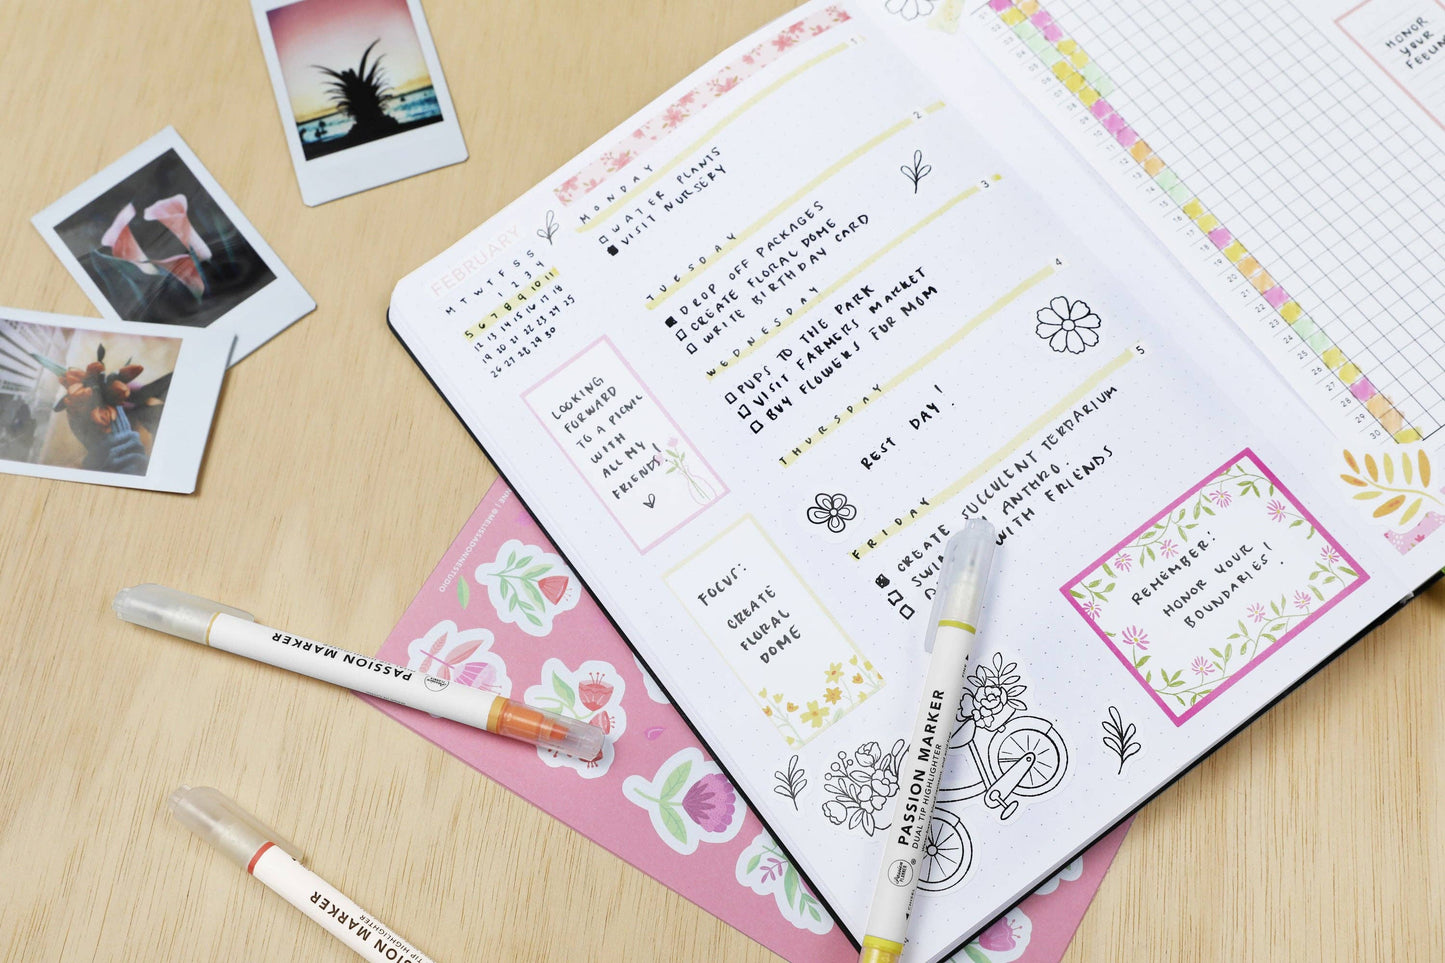 FEBRUARY
M T W T F S S
1 2 3 4
5 6 7 8 9 10 11
12 13 14 15 16 17 18
19 20 21 22 23 24 25
26 27 28 29 30
LOOKING
FORWARD
TO A PICNIC
WITH
ALL MY
FRIENDS!
FOCUS:
CREATE
FLORAL
DOME
MONDAY 1
WATER PLANTS
VISIT NURSERY
TUESDAY 2
DROP OFF PACKAGES
CREATE FLORAL DOME
WRITE BIRTHDAY CARD
WEDNESDAY 3
PUPS TO THE PARK
VISIT FARMERS MARKET
BUY FLOWERS FOR MOM
THURSDAY 4
REST DAY!
FRIDAY 5
CREATE SUCCULENT TERRARIUM
ANTHRO
WITH FRIENDS
REMEMBER:
HONOR YOUR
BOUNDARIES!
HONOR
YOUR
22
23
24
25
26
27
28
29
30
@MELISSADONNESTUDIO
PASSION MARKER
PASSION MARKER
DUAL TIP HIGHLIGHTER
PASSION MARKER
TIP HIGHLIGHTER